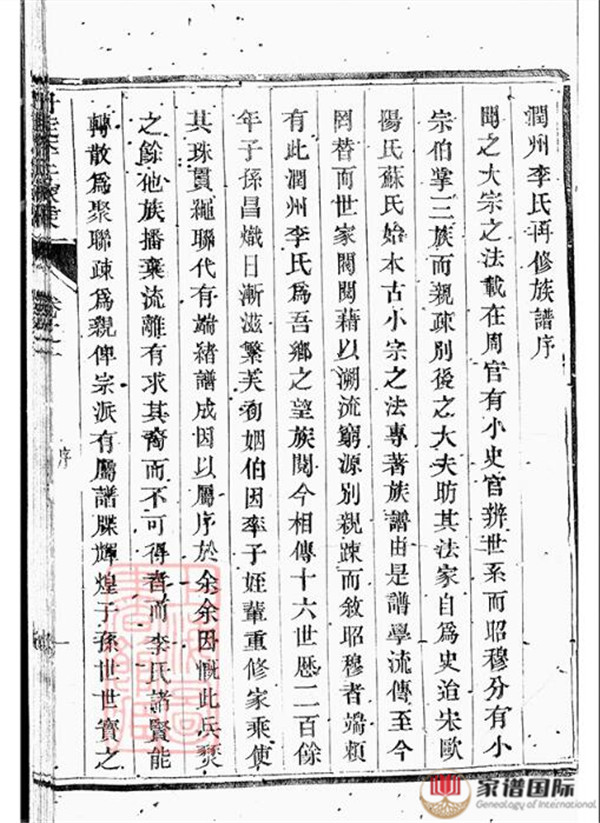 潤州李氏再修族譜序
聞之大宗之法載在周官有小史官辨世系而昭穆分有小
宗伯掌三族而親疎別後之大夫昉其法家自為史迨宋歐
陽氏蘇氏始本古小宗之法專著族譜由是譜學流傳至今
罔替而世家閥閱藉以溯流窮源別親疎而敘昭穆者端賴
有此潤州李氏為吾鄉之望族閱今相傳十六世歷二百餘
年子孫昌熾日漸滋繁芙初姻伯因率子姪輩重修家乘使
其珠貫繩聯代有端緒譜成因以屬序於余余因慨此兵燹
之餘他族播棄流離有求其裔而不可得者而李氏諸賢能
轉散為聚聯疎為親俾宗派有屬譜牒輝煌子孫世世寶之
序
家谱国际
Genealogy of International